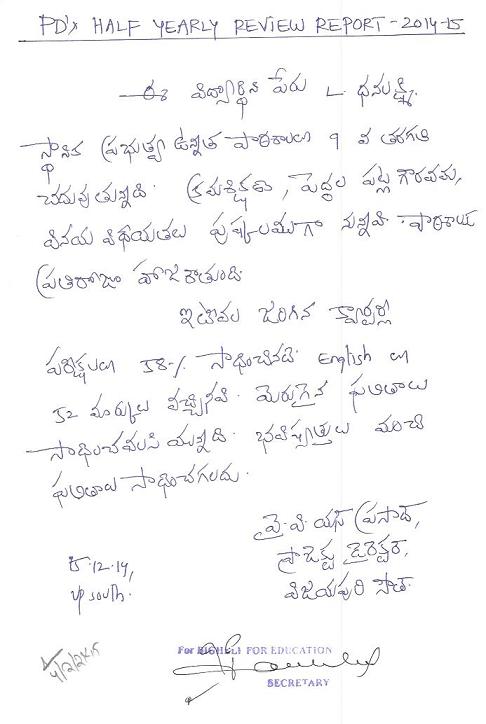 PD's HALF YEARLY REVIEW REPORT - 2014-15
ఈ విద్యార్థిని పేరు L. ధనలక్ష్మి.
స్థానిక ప్రభుత్వ ఉన్నత పాఠశాలలో 9 వ తరగతి
చదువుతున్నది. క్రమశిక్షణ, పెద్దల పట్ల గౌరవము,
వినయ విధేయతలు పుష్కలముగా నున్నవి. పాఠశాలకు
ప్రతిరోజూ హాజరౌతుంది.
ఇటీవల జరిగిన క్వార్టర్లీ
పరీక్షలలో 58% సాధించినది. English లో
52 మార్కులు వచ్చినవి. మెరుగైన ఫలితాలు
సాధించవలసి యున్నది. భవిష్యత్తులో మంచి
ఫలితాలు సాధించగలదు.
వై. వి. యస్ ప్రసాద్,
ప్రాజెక్టు డైరెక్టర్,
విజయపురి సౌత్.
5.12.14,
VP South.
4/2/2K15
For FOR EDUCATION
SECRETARY